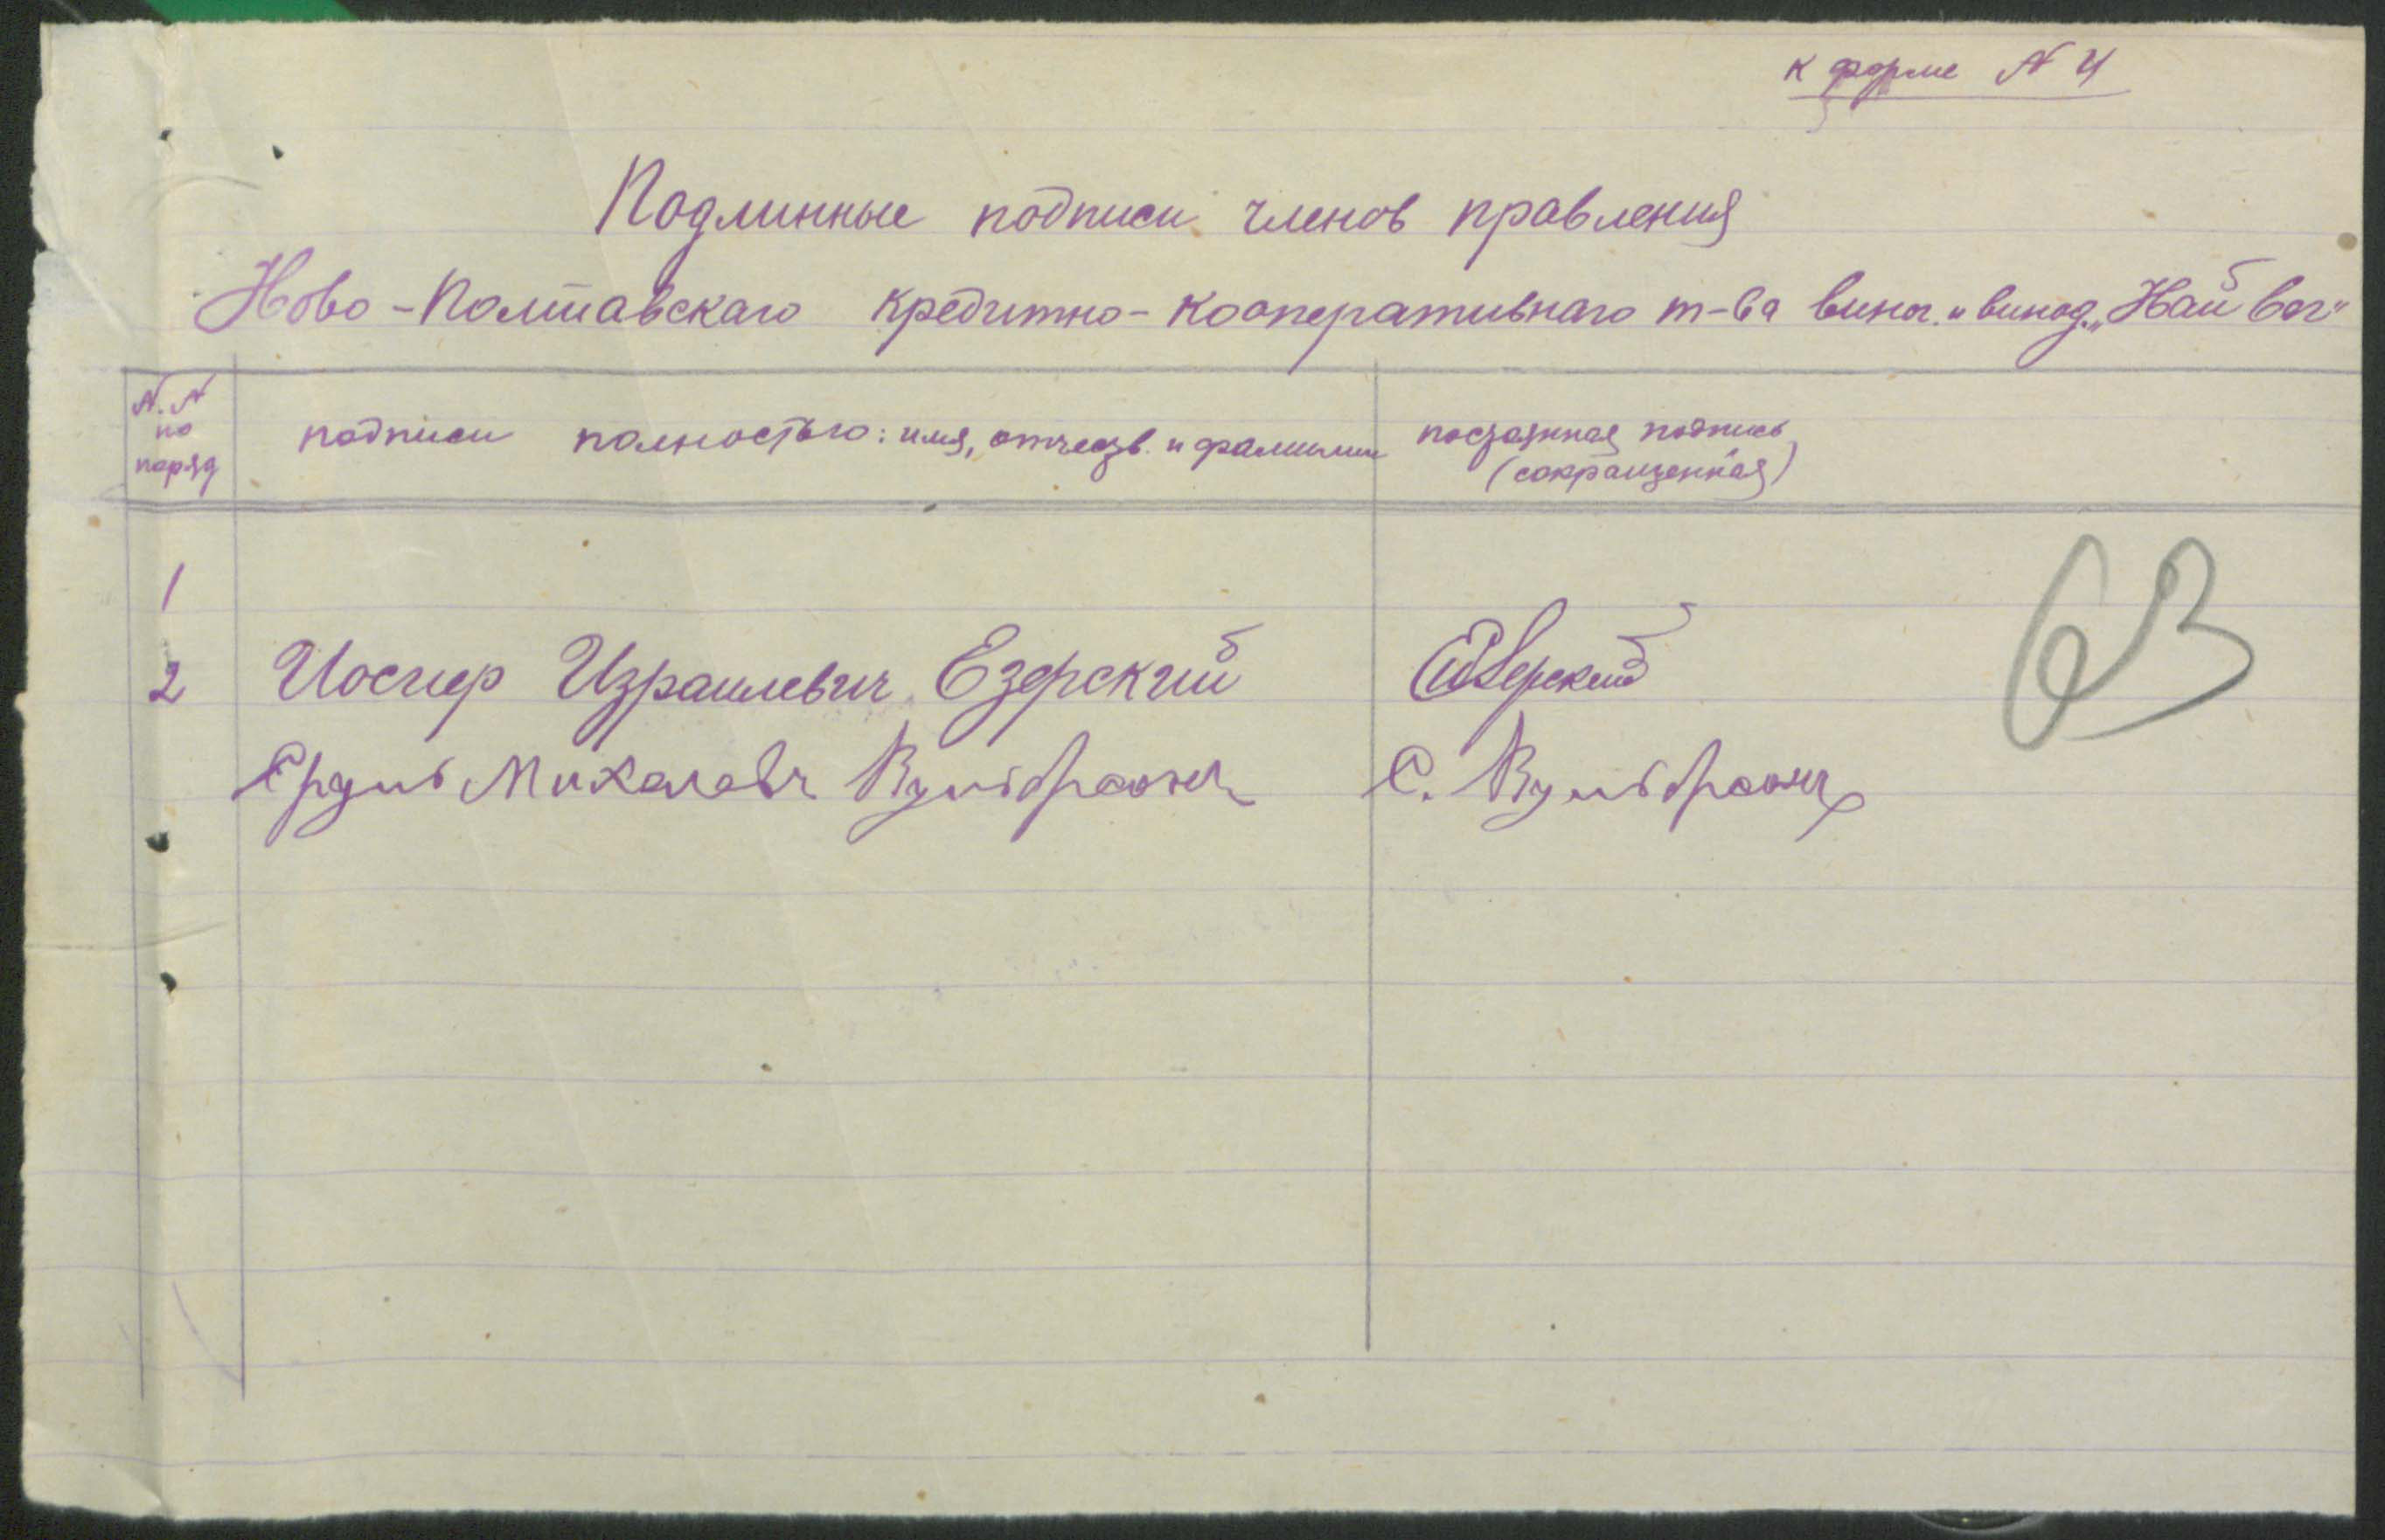 к форме N 4
Подлинные подписи членов правления
Ново-Полтавскаго кредитно-кооперативнаго т-ва виног. и винод. „Най Вег"
N.N по поряд
подписи полностью: имя, отчеств. и фамилии
посзаянная подпись (сокращенная)
1
2 Иосиф Израилевич Езерский Езерский
63